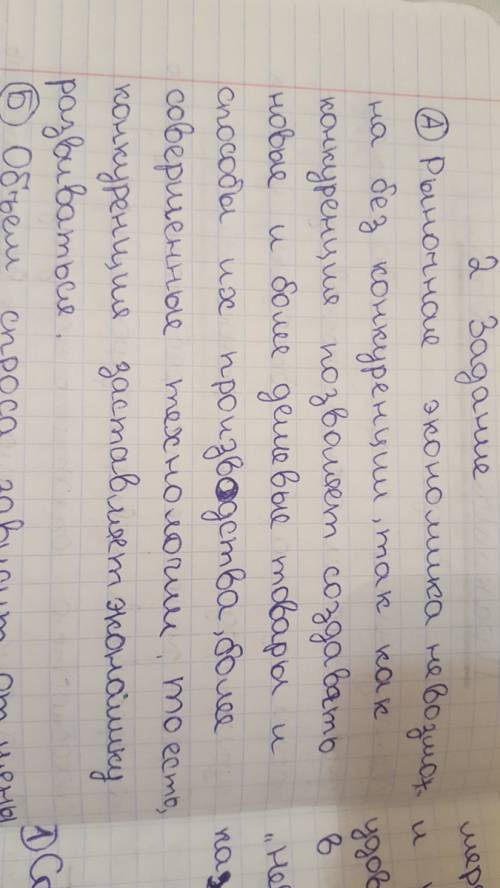 2 Задание
(А) Рыночная экономика невозмож
на без конкуренции, так как
конкуренция позволяет создавать
новые и более дешевые товары и
способы их производства, более
совершенные технологии, то есть,
конкуренция заставляет экономику
развиваться.
(Б) Объем спроса зависит от цены
мер
и
удов
в
"не
1)